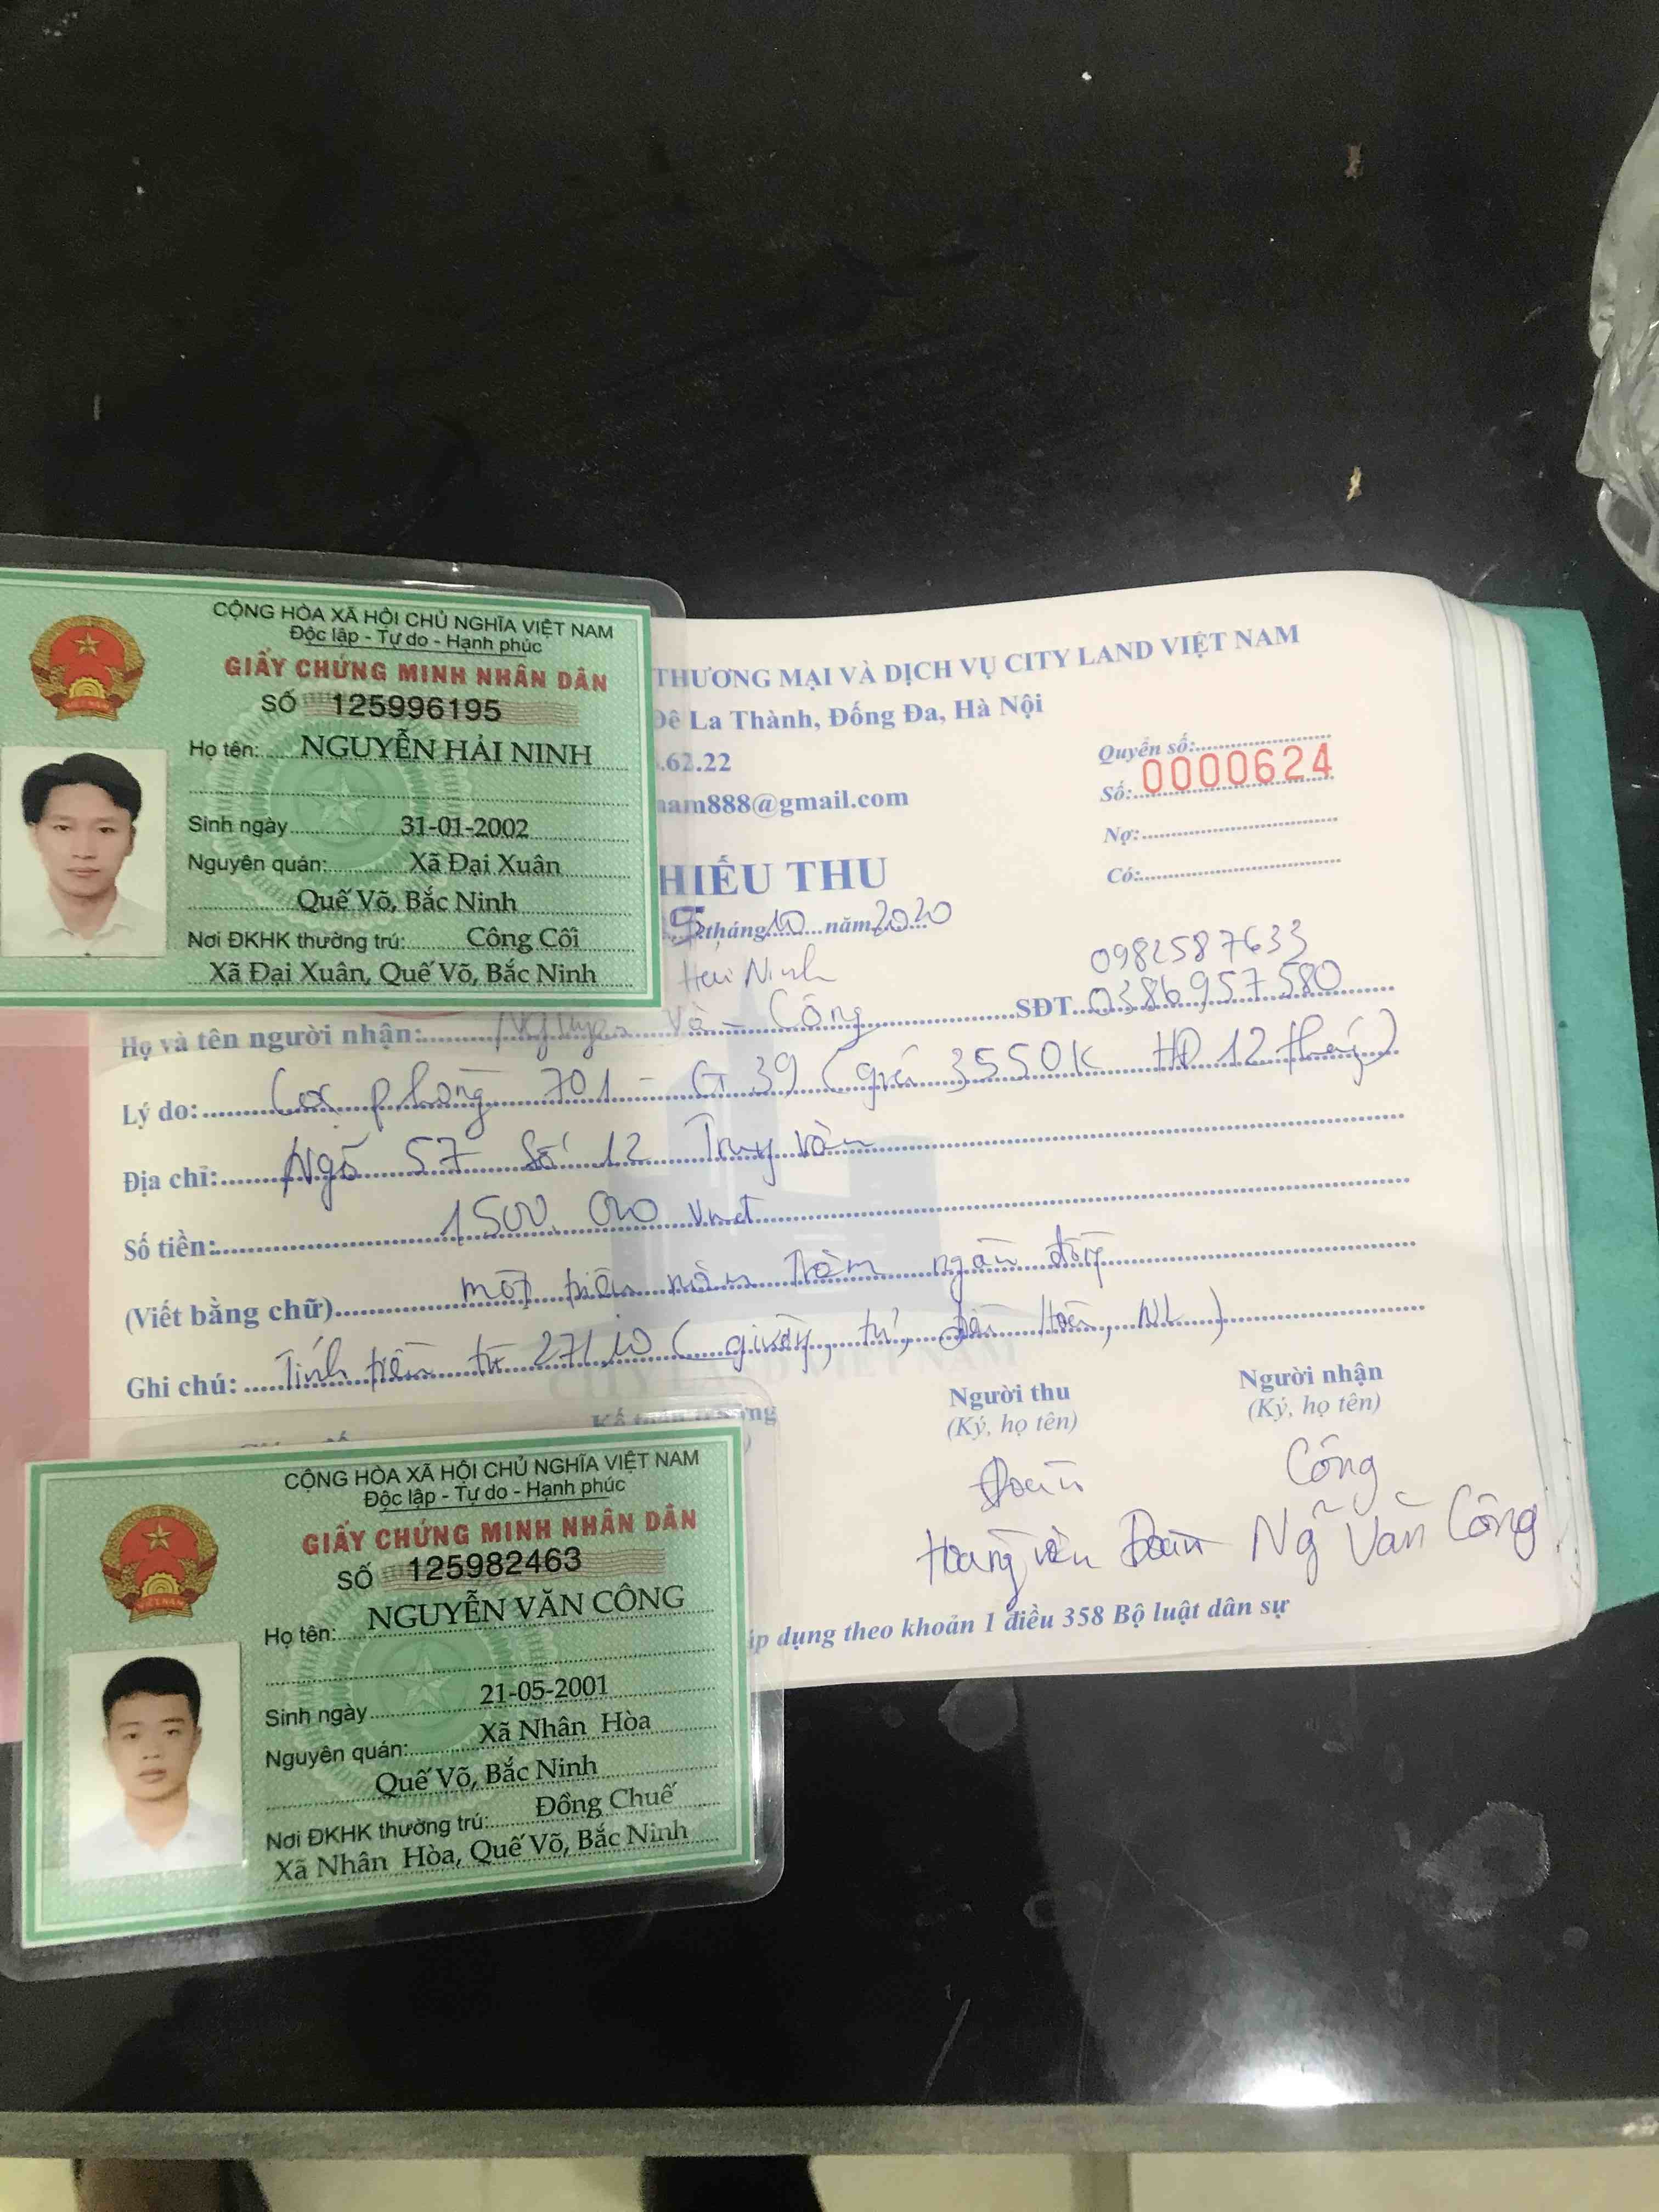 CỘNG HÒA XÃ HỘI CHỦ NGHĨA VIỆT NAM
Độc lập - Tự do - Hạnh phúc
GIẤY CHỨNG MINH NHÂN DÂN
SỐ 125996195
Họ tên: NGUYỄN HẢI NINH
Sinh ngày 31-01-2002
Nguyên quán: Xã Đại Xuân
Quế Võ, Bắc Ninh
Nơi ĐKHK thường trú: Công Cối
Xã Đại Xuân, Quế Võ, Bắc Ninh
THƯƠNG MẠI VÀ DỊCH VỤ CITY LAND VIỆT NAM
Đê La Thành, Đống Đa, Hà Nội
.62.22
nam888@gmail.com
Quyển số:
Số: 0000624
Nợ:
Có:
HIẾU THU
5 tháng 10 năm 2020
Hải Ninh 0982587633
Họ và tên người nhận: Nguyễn Vă Công SĐT 0386957580
Lý do: Cọc phòng 701 - G39 (giá 3550K HĐ 12 tháng)
Địa chỉ: Ngõ 57 Số 12
Số tiền: 1500.000 vnđ
(Viết bằng chữ) một triệu năm trăm ngàn đồng
Ghi chú: Tính tiền từ 27/10 (giường, tủ, NL)
Người thu
(Ký, họ tên)
Người nhận
(Ký, họ tên)
Đoàn
Công
Hoàng Đoàn
Ng Văn Công
áp dụng theo khoản 1 điều 358 Bộ luật dân sự
CỘNG HÒA XÃ HỘI CHỦ NGHĨA VIỆT NAM
Độc lập - Tự do - Hạnh phúc
GIẤY CHỨNG MINH NHÂN DÂN
SỐ 125982463
Họ tên: NGUYỄN VĂN CÔNG
Sinh ngày 21-05-2001
Nguyên quán: Xã Nhân Hòa
Quế Võ, Bắc Ninh
Nơi ĐKHK thường trú: Đồng Chuế
Xã Nhân Hòa, Quế Võ, Bắc Ninh